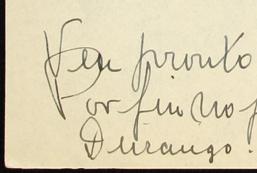 Ven pronto
Por fin no p
Durango.